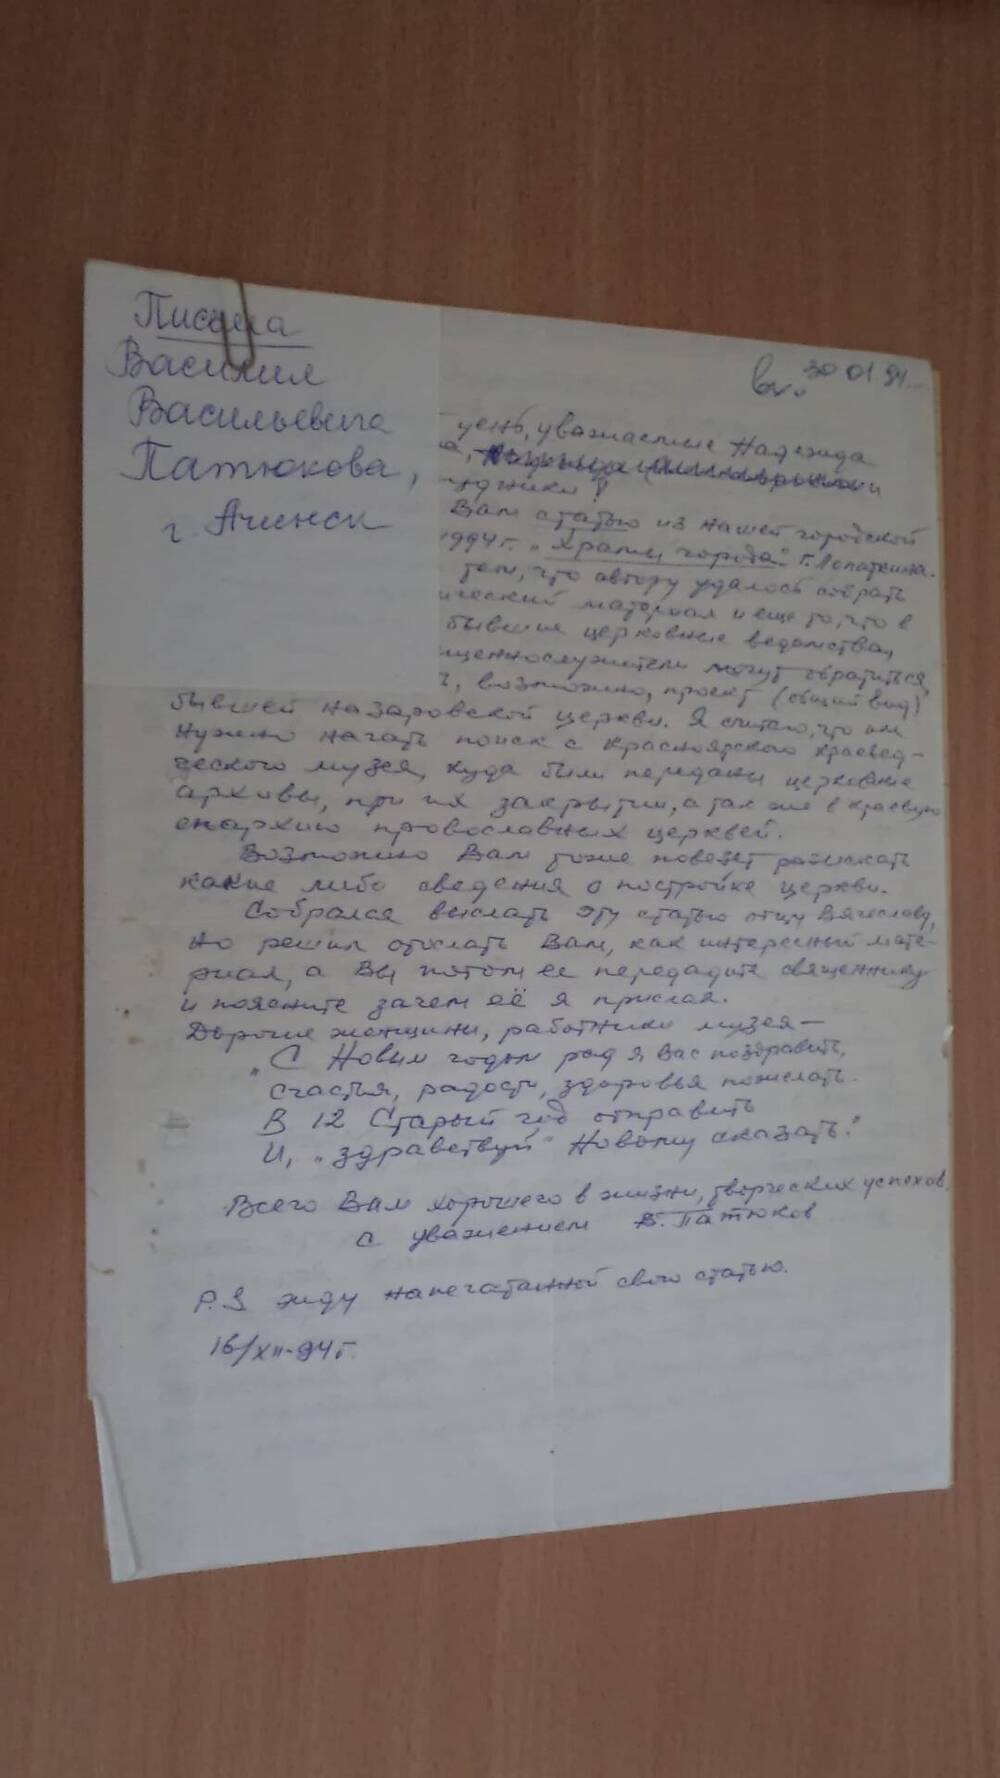 Письма
Василия
Васильевича
Патюкова,
г. Ачинск
вх. 30 01 94
уважаемые Надежда
Вам статью из нашей городской
1994 г. „Храмы города" Г. Лопаткина.
тем, что автору удалось собрать
ический материал и еще то, что в
бывшие церковные ведомства,
щеннослужители могут обратиться,
возможно, проект (общий вид)
бывшей назаровской церкви. Я считаю, что им
нужно начать поиск с красноярского краевед-
ческого музея, куда были переданы церковные
архивы, при их закрытии, а так же в краевую
епархию провославных церквей.
Возможно Вам тоже повезёт разыскать
какие либо сведения о постройке церкви.
Собрался выслать эту статью отцу Вячеславу,
но решил отослать Вам, как интересный мате-
риал, а Вы потом ее передадите священнику
и поясните зачем её я прислал.
Дорогие женщины, работники музея —
„С Новым годом рад я Вас поздравить,
счастья, радости, здоровья пожелать.
В 12 Старый год отправить
И, „здравствуй" Новому сказать."
Всего Вам хорошего в жизни, творческих успехов.
С уважением В. Патюков
P.S жду напечатанной свою статью.
16/XII-94 г.